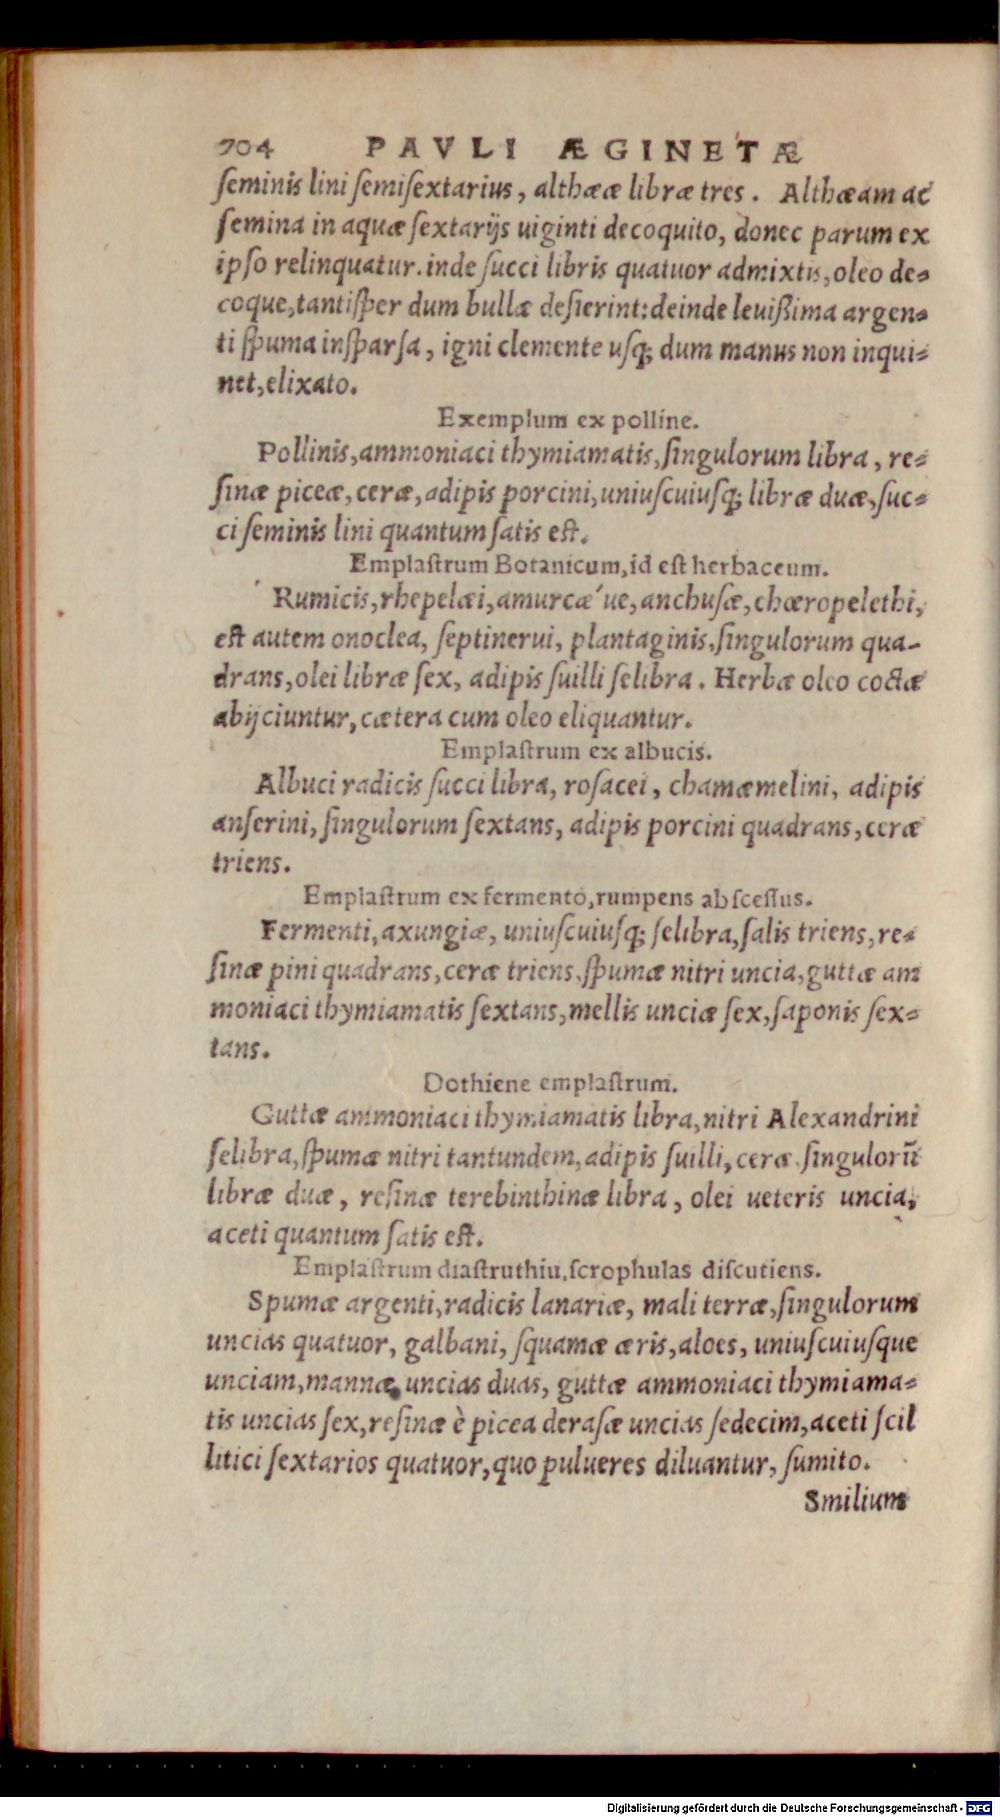 704 PAVLI ÆGINETÆ
ſeminis lini ſemiſextarius, althææ libræ tres. Althæam ac
ſemina in aquæ ſextarijs uiginti decoquito, donec parum ex
ipſo relinquatur. inde ſucci libris quatuor admixtis, oleo de⸗
coque, tantiſper dum bullæ deſierint: deinde leuißima argen⸗
ti ſpuma inſparſa, igni clemente uſq; dum manus non inqui⸗
net, elixato.
Exemplum ex polline.
Pollinis, ammoniaci thymiamatis, ſingulorum libra, re⸗
ſinæ piceæ, ceræ, adipis porcini, uniuſcuiuſq; libræ duæ, ſuc⸗
ci ſeminis lini quantum ſatis eſt.
Emplaſtrum Botanicum, id eſt herbaceum.
Rumicis, rhepelæi, amurcæ´ue, anchuſæ, chœropelethi,
eſt autem onoclea, ſeptinerui, plantaginis, ſingulorum qua-
drans, olei libræ ſex, adipis ſuilli ſelibra. Herbæ oleo coctæ
abijciuntur, cætera cum oleo eliquantur.
Emplaſtrum ex albucis.
Albuci radicis ſucci libra, roſacei, chamæmelini, adipis
anſerini, ſingulorum ſextans, adipis porcini quadrans, ceræ
triens.
Emplaſtrum ex fermento, rumpens abſceſſus.
Fermenti, axungiæ, uniuſcuiuſq; ſelibra, ſalis triens, re⸗
ſinæ pini quadrans, ceræ triens, ſpumæ nitri uncia, guttæ am
moniaci thymiamatis ſextans, mellis unciæ ſex, ſaponis ſex⸗
tans.
Dothiene emplaſtrum.
Guttæ ammoniaci thymiamatis libra, nitri Alexandrini
ſelibra, ſpumæ nitri tantundem, adipis ſuilli, ceræ, ſingulorũ
libræ duæ, reſinæ terebinthinæ libra, olei ueteris uncia,
aceti quantum ſatis eſt.
Emplaſtrum diaſtruthiu, ſcrophulas diſcutiens.
Spumæ argenti, radicis lanariæ, mali terræ, ſingulorum
uncias quatuor, galbani, ſquamæ æris, aloes, uniuſcuiuſque
unciam, mannæ uncias duas, guttæ ammoniaci thymiama⸗
tis uncias ſex, reſinæ è picea deraſæ uncias ſedecim, aceti ſcil
litici ſextarios quatuor, quo pulueres diluantur, ſumito.
Smilium
Digitalisierung gefördert durch die Deutsche Forschungsgemeinschaft - DFG